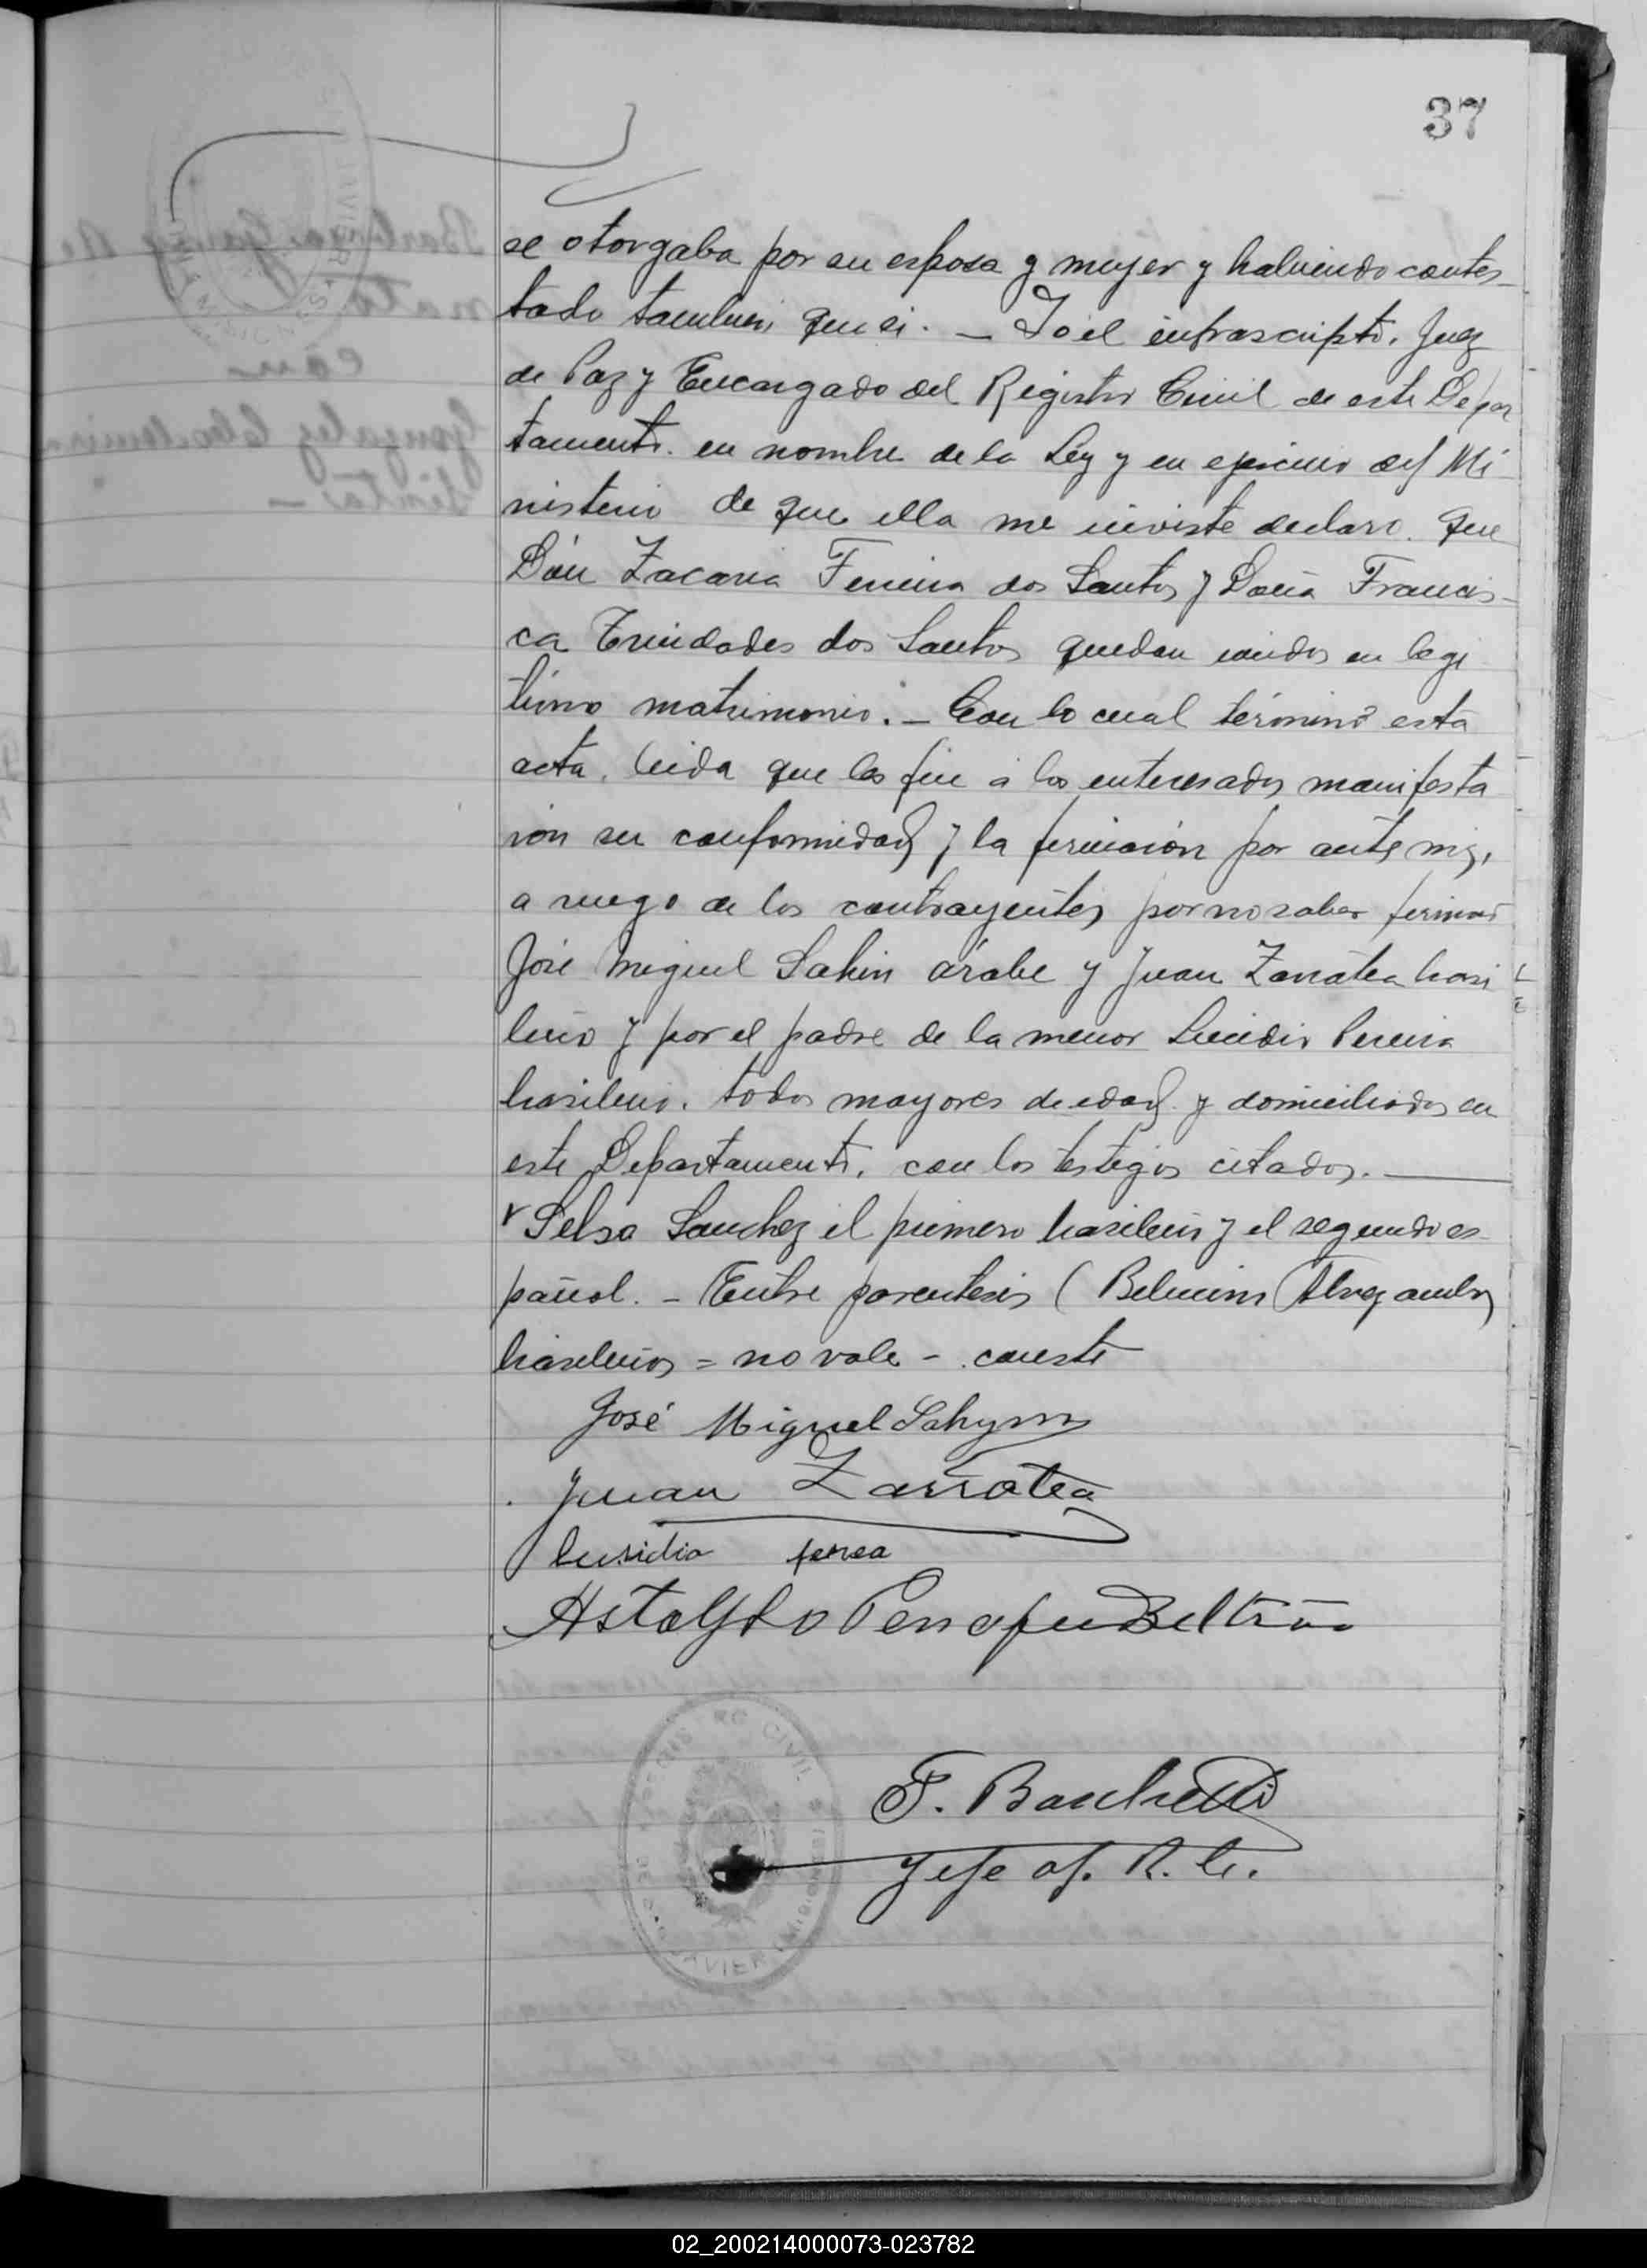 37
se otorgaba por su esposa y mujer y habiendo contes-
tado tambien que si. — Yo el infrascripto, Juez
de Paz y Encargado del Registro Civil de este Depar
tamento. en nombre de la Ley y en ejercicio del Mi
nisterio de que ella me inviste declaro. que
Dón Zacaria Ferreira dos Santos y Doña Francis-
ca Trindades dos Santos quedan unidos en legi
timo matrimonio. — Con lo cual términó esta
acta, leida que les fue a los interesados manifesta
rón su conformidad y la firmarón por ante mi,
a ruego de los contrayentes por no saber firmar
José Miguel Sahin árabe y Juan Zarratea brasi
leño y por el padre de la menor Lucidio Pereira
brasileño. todos mayores de edad y domiciliados en
este Departamento, con los testigos citados. —
Selso Sanchez el primero brasileño y el segundo es-
pañol. - Entre parentesis ( Belmiro Alvez ambos
brasileños = no vale -
José Miguel Sahym
Juan Zarratea
Lusidio
Astolfdo Beltrão
F. Banchetti
Jefe of. R. C.
REGISTRO CIVIL
02_200214000073-023782